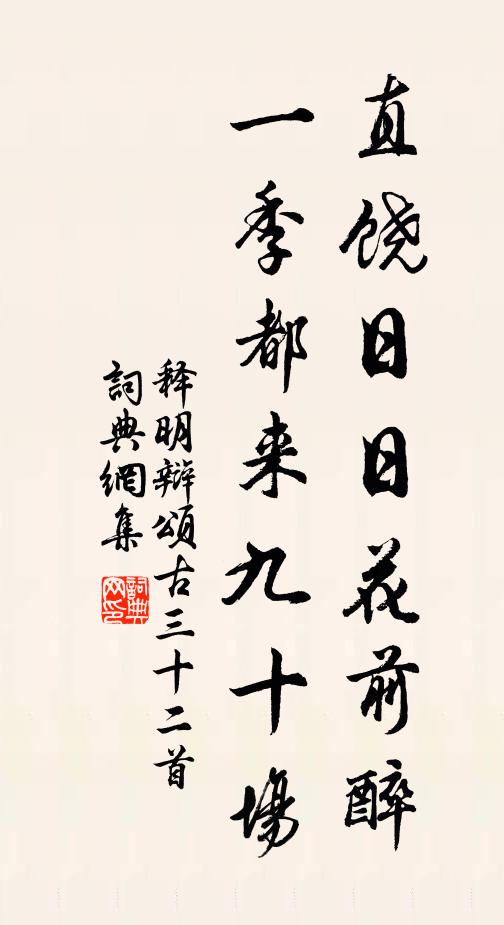 直饶日日花前醉
一季都来九十場
释明辯頌古三十二首
詞典網集
詞典网印